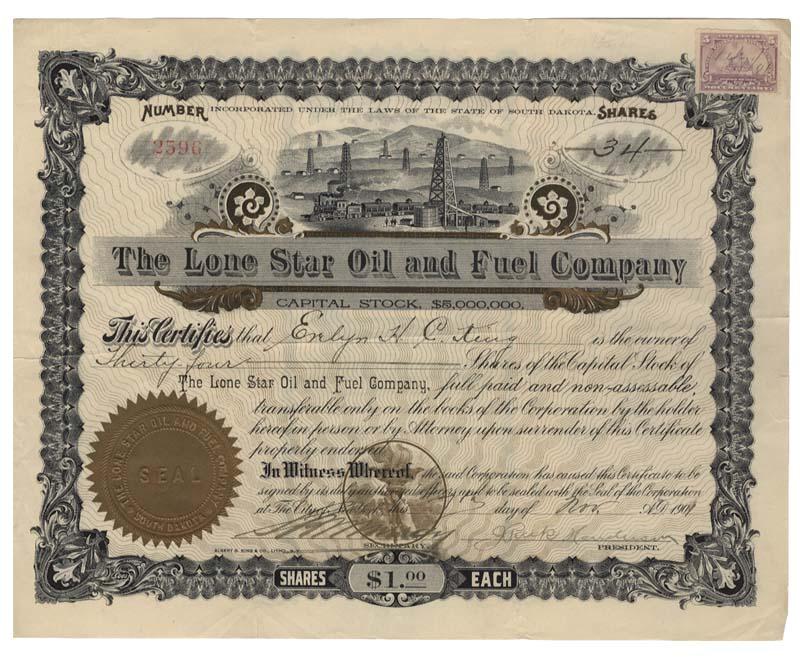 NUMBER INCORPORATED UNDER THE LAWS OF THE STATE OF SOUTH DAKOTA. SHARES
2596
34
The Lone Star Oil and Fuel Company
CAPITAL STOCK, $5,000,000.
This Certifies that Evelyn H. C. King is the owner of
Thirty-four Shares of the Capital Stock of
The Lone Star Oil and Fuel Company, full paid and non-assessable,
transferable only on the books of the Corporation by the holder
hereof in person or by Attorney upon surrender of this Certificate
properly endorsed.
THE LONE STAR OIL AND FUEL COMPANY
SEAL
SOUTH DAKOTA
In Witness Whereof, the said Corporation has caused this Certificate to be
signed by its duly authorized officers and to be sealed with the Seal of the Corporation
at The City of this day of Nov A.D. 1901
SECRETARY.
PRESIDENT.
ALBERT B. KING & CO., LITHO., N.Y.
SHARES $1.00 EACH